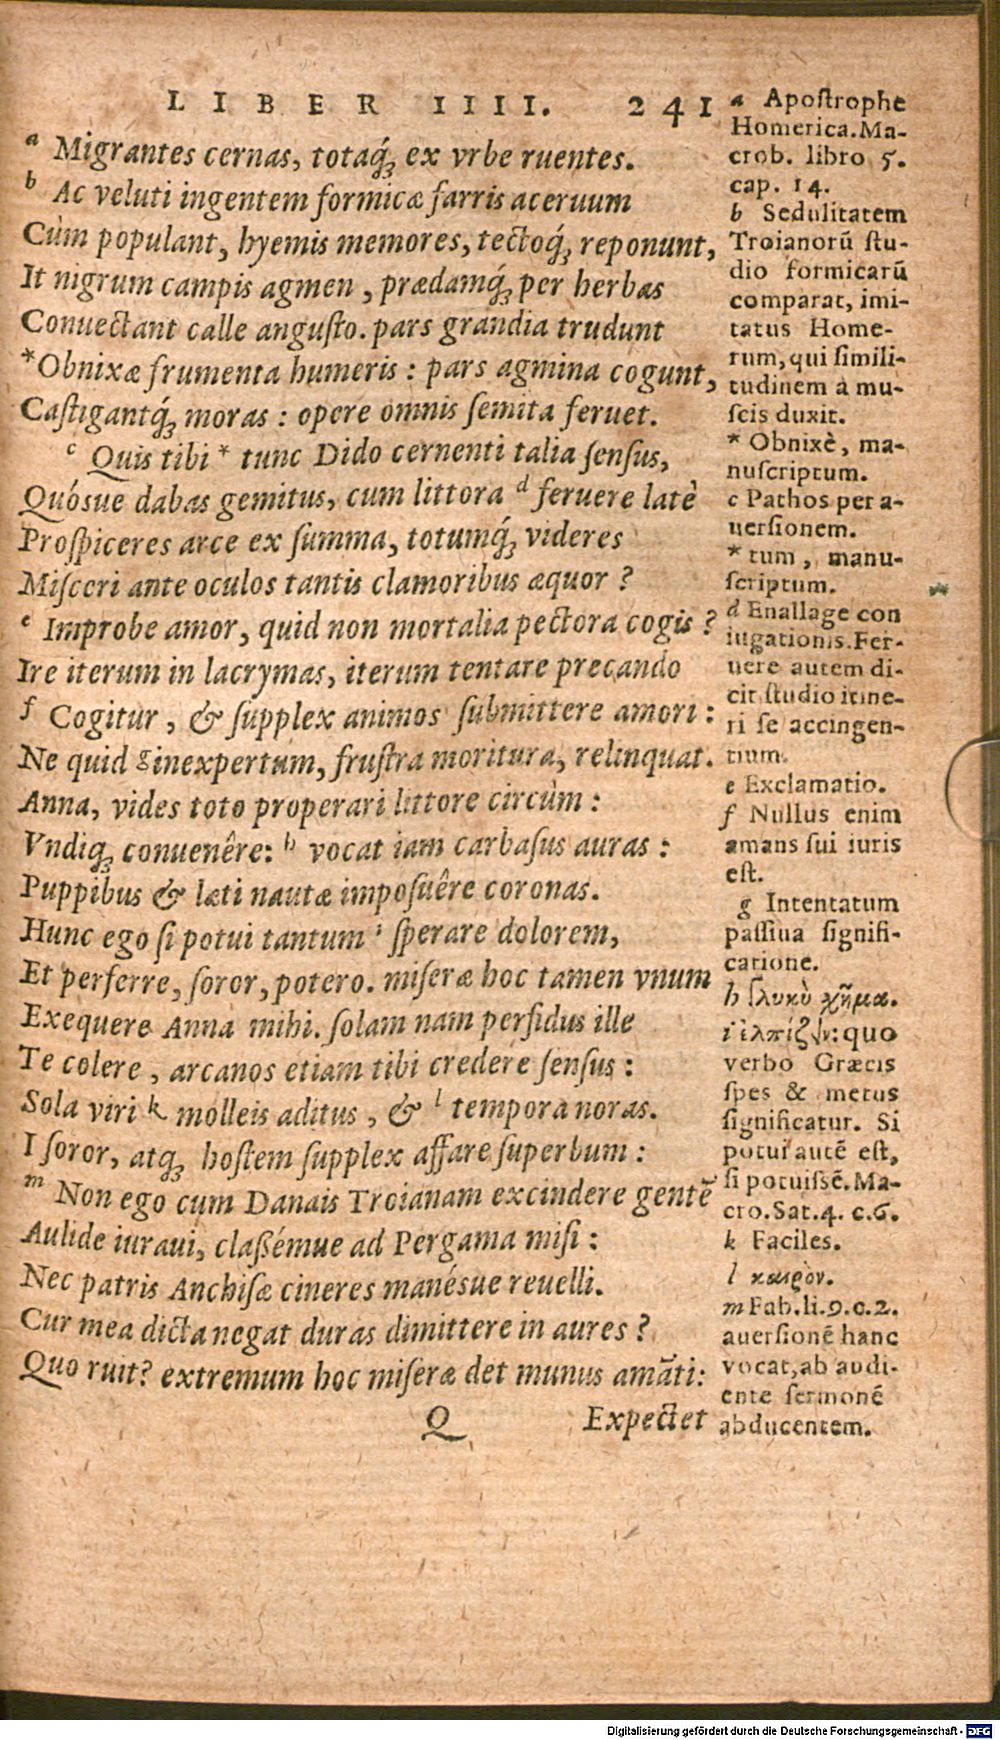 LIBER IIII. 241
a Migrantes cernas, totaq́; ex vrbe ruentes.
b Ac veluti ingentem formicæ farris aceruum
Cùm populant, hyemis memores, tectoq́; reponunt,
It nigrum campis agmen, prædamq́; per herbas
Conuectant calle angusto. pars grandia trudunt
*Obnixæ frumenta humeris: pars agmina cogunt,
Castigantq́; moras: opere omnis semita feruet.
c Quis tibi * tunc Dido cernenti talia sensus,
Quósue dabas gemitus, cum littora d feruere latè
Prospiceres arce ex summa, totumq́; videres
Misceri ante oculos tantis clamoribus æquor?
e Improbe amor, quid non mortalia pectora cogis?
Ire iterum in lacrymas, iterum tentare precando
f Cogitur, & supplex animos submittere amori:
Ne quid g inexpertum, frustra moritura, relinquat.
Anna, vides toto properari littore circùm:
Vndiq; conuenêre: h vocat iam carbasus auras:
Puppibus & læti nautæ imposuêre coronas.
Hunc ego si potui tantum i sperare dolorem,
Et perferre, soror, potero. miseræ hoc tamen vnum
Exequere Anna mihi. solam nam perfidus ille
Te colere, arcanos etiam tibi credere sensus:
Sola viri k molleis aditus, & l tempora noras.
I soror, atq; hostem supplex affare superbum:
m Non ego cum Danais Troianam excindere gentē
Aulide iuraui, classémue ad Pergama misi:
Nec patris Anchisæ cineres manésue reuelli.
Cur mea dicta negat duras dimittere in aures?
Quo ruit? extremum hoc miseræ det munus amāti:
Q Expectet
a Apostrophe
Homerica. Ma-
crob. libro 5.
cap. 14.
b Sedulitatem
Troianorū stu-
dio formicarū
comparat, imi-
tatus Home-
rum, qui simili-
tudinem à mu-
scis duxit.
* Obnixè, ma-
nuscriptum.
c Pathos per a-
uersionem.
* tum, manu-
scriptum.
d Enallage con
iugationis. Fer-
uere autem di-
cit studio itine-
ri se accingen-
tium.
e Exclamatio.
f Nullus enim
amans sui iuris
est.
g Intentatum
passiua signifi-
catione.
h γλυκὺ χῆμα.
i ἐλπίζειν: quo
verbo Græcis
spes & metus
significatur. Si
potui autē est,
si potuissē. Ma-
cro. Sat. 4. c. 6.
k Faciles.
l καιρὸν.
m Fab. li. 9. c. 2.
auersionē hanc
vocat, ab audi-
ente sermonē
abducentem.
Digitalisierung gefördert durch die Deutsche Forschungsgemeinschaft - DFG